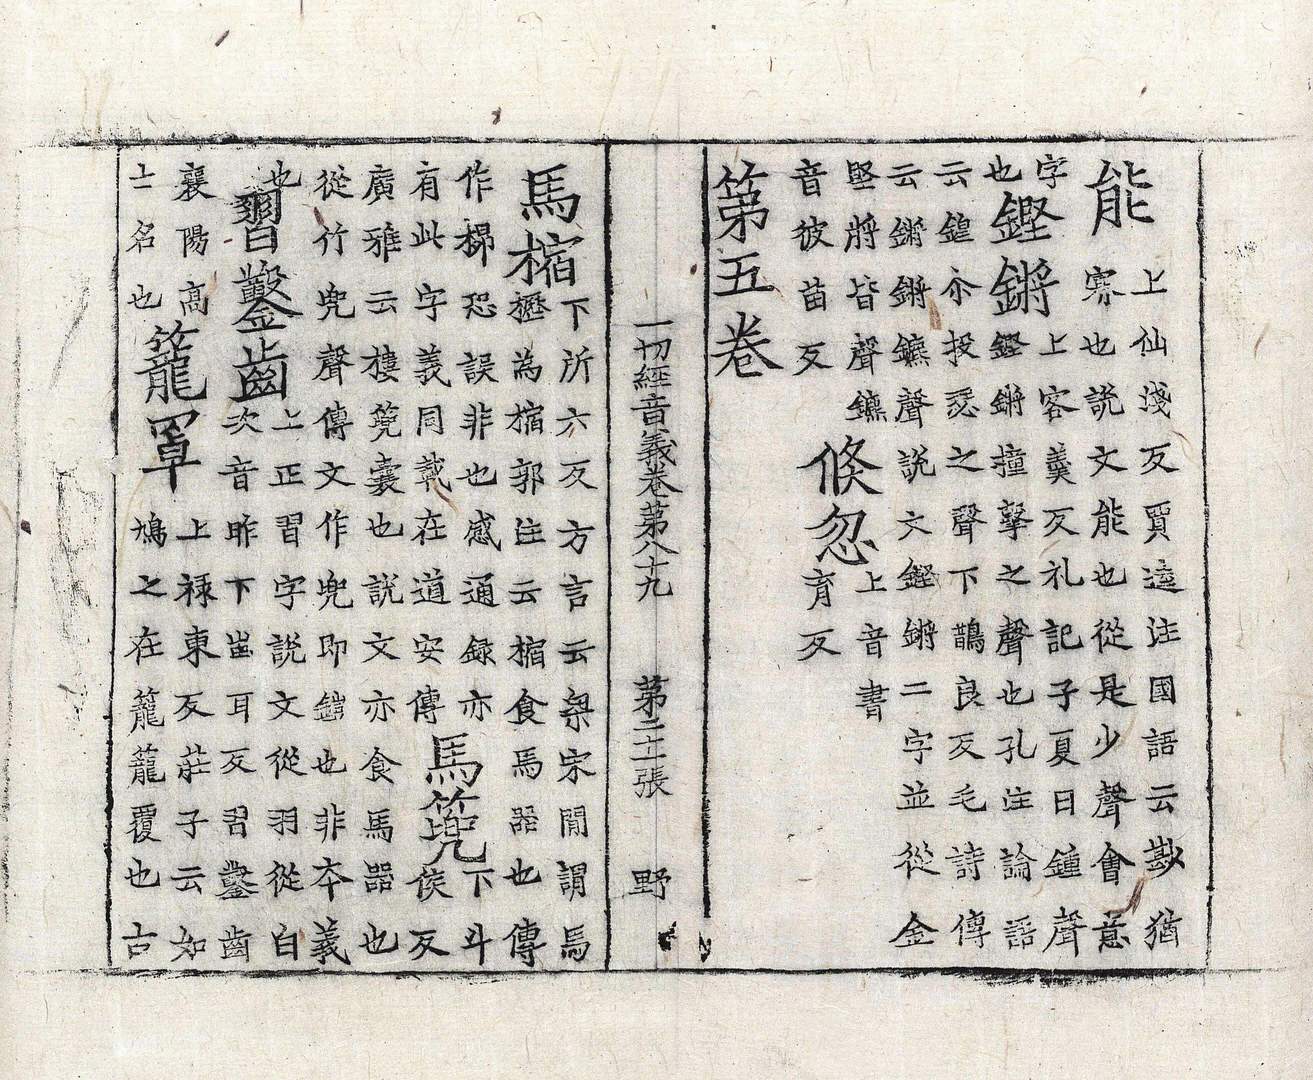 能上仙淺反賈逵注國語云尠猶
寡也說文能也從是少聲會意
字也鏗鏘上客羹反礼記子夏曰鍾聲
鏗鏘撞擊之聲也孔注論語
云鍠亦投瑟之聲下鵲良反毛詩傳
云鏘鏘鑣聲說文鏗鏘二字並從金
堅將皆聲鑣音彼苗反倏忽上音書育反
第五卷
一切經音義卷第八十九 第二十一張 野
馬樎下所六反方言云梁宋閒謂馬
櫪為樎郭注云樎食馬器也傳
作樤恐誤非也感通録亦
有此字義同載在道安傳馬篼下斗侯反
廣雅云樓篼囊也說文亦食馬器也
從竹兜聲傳文作兜即鎧也非本義
也習鑿齒上正習字說文從羽從白
次音昨下齒耳反習鑿齒
襄陽高士名也籠罩上禄東反莊子云如
鳩之在籠籠覆也古